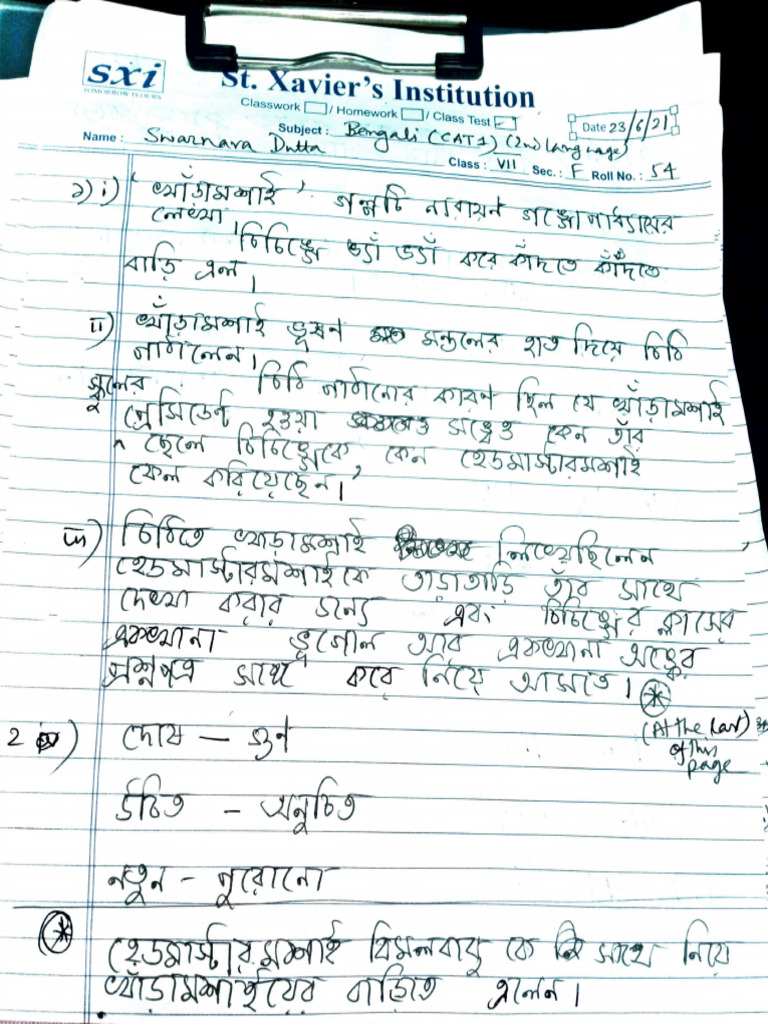 sxi
TOMORROW IS OURS
St. Xavier's Institution
Classwork / Homework / Class Test
Date 23/6/21
Subject : Bengali (CAT1) (2nd language)
Name : Swarnava Dutta
Class : VII Sec. : F Roll No. : 54
১) i) 'খাঁড়ামশাই' গল্পটি নারায়ণ গঙ্গোপাধ্যায়ের
লেখা।
চিচিঙ্গে ভ্যাঁ ভ্যাঁ করে কাঁদতে কাঁদতে
বাড়ি এল।
ii) খাঁড়ামশাই ভূষণ মন্ডলের হাত দিয়ে চিঠি
পাঠালেন।
চিঠি পাঠানোর কারণ ছিল যে খাঁড়ামশাই
স্কুলের
প্রেসিডেন্ট হওয়া সত্ত্বেও কেন তাঁর
ছেলে চিচিঙ্গেকে, কেন হেডমাস্টারমশাই
ফেল করিয়েছেন।
iii) চিঠিতে খাড়ামশাই লিখেছিলেন
হেডমাস্টারমশাইকে তাড়াতাড়ি তাঁর সাথে
দেখা করার জন্যে এবং চিচিঙ্গের ক্লাসের
একখানা ভূগোল আর একখানা অঙ্কের
প্রশ্নপত্র সাথে করে নিয়ে আসতে।
(At the last)
of this
page
2) দোষ — গুণ
উচিত - অনুচিত
নতুন - পুরোনো
হেডমাস্টার মশাই বিমলবাবু কে সাথে নিয়ে
খাঁড়ামশাইয়ের বাড়িতে এলেন।